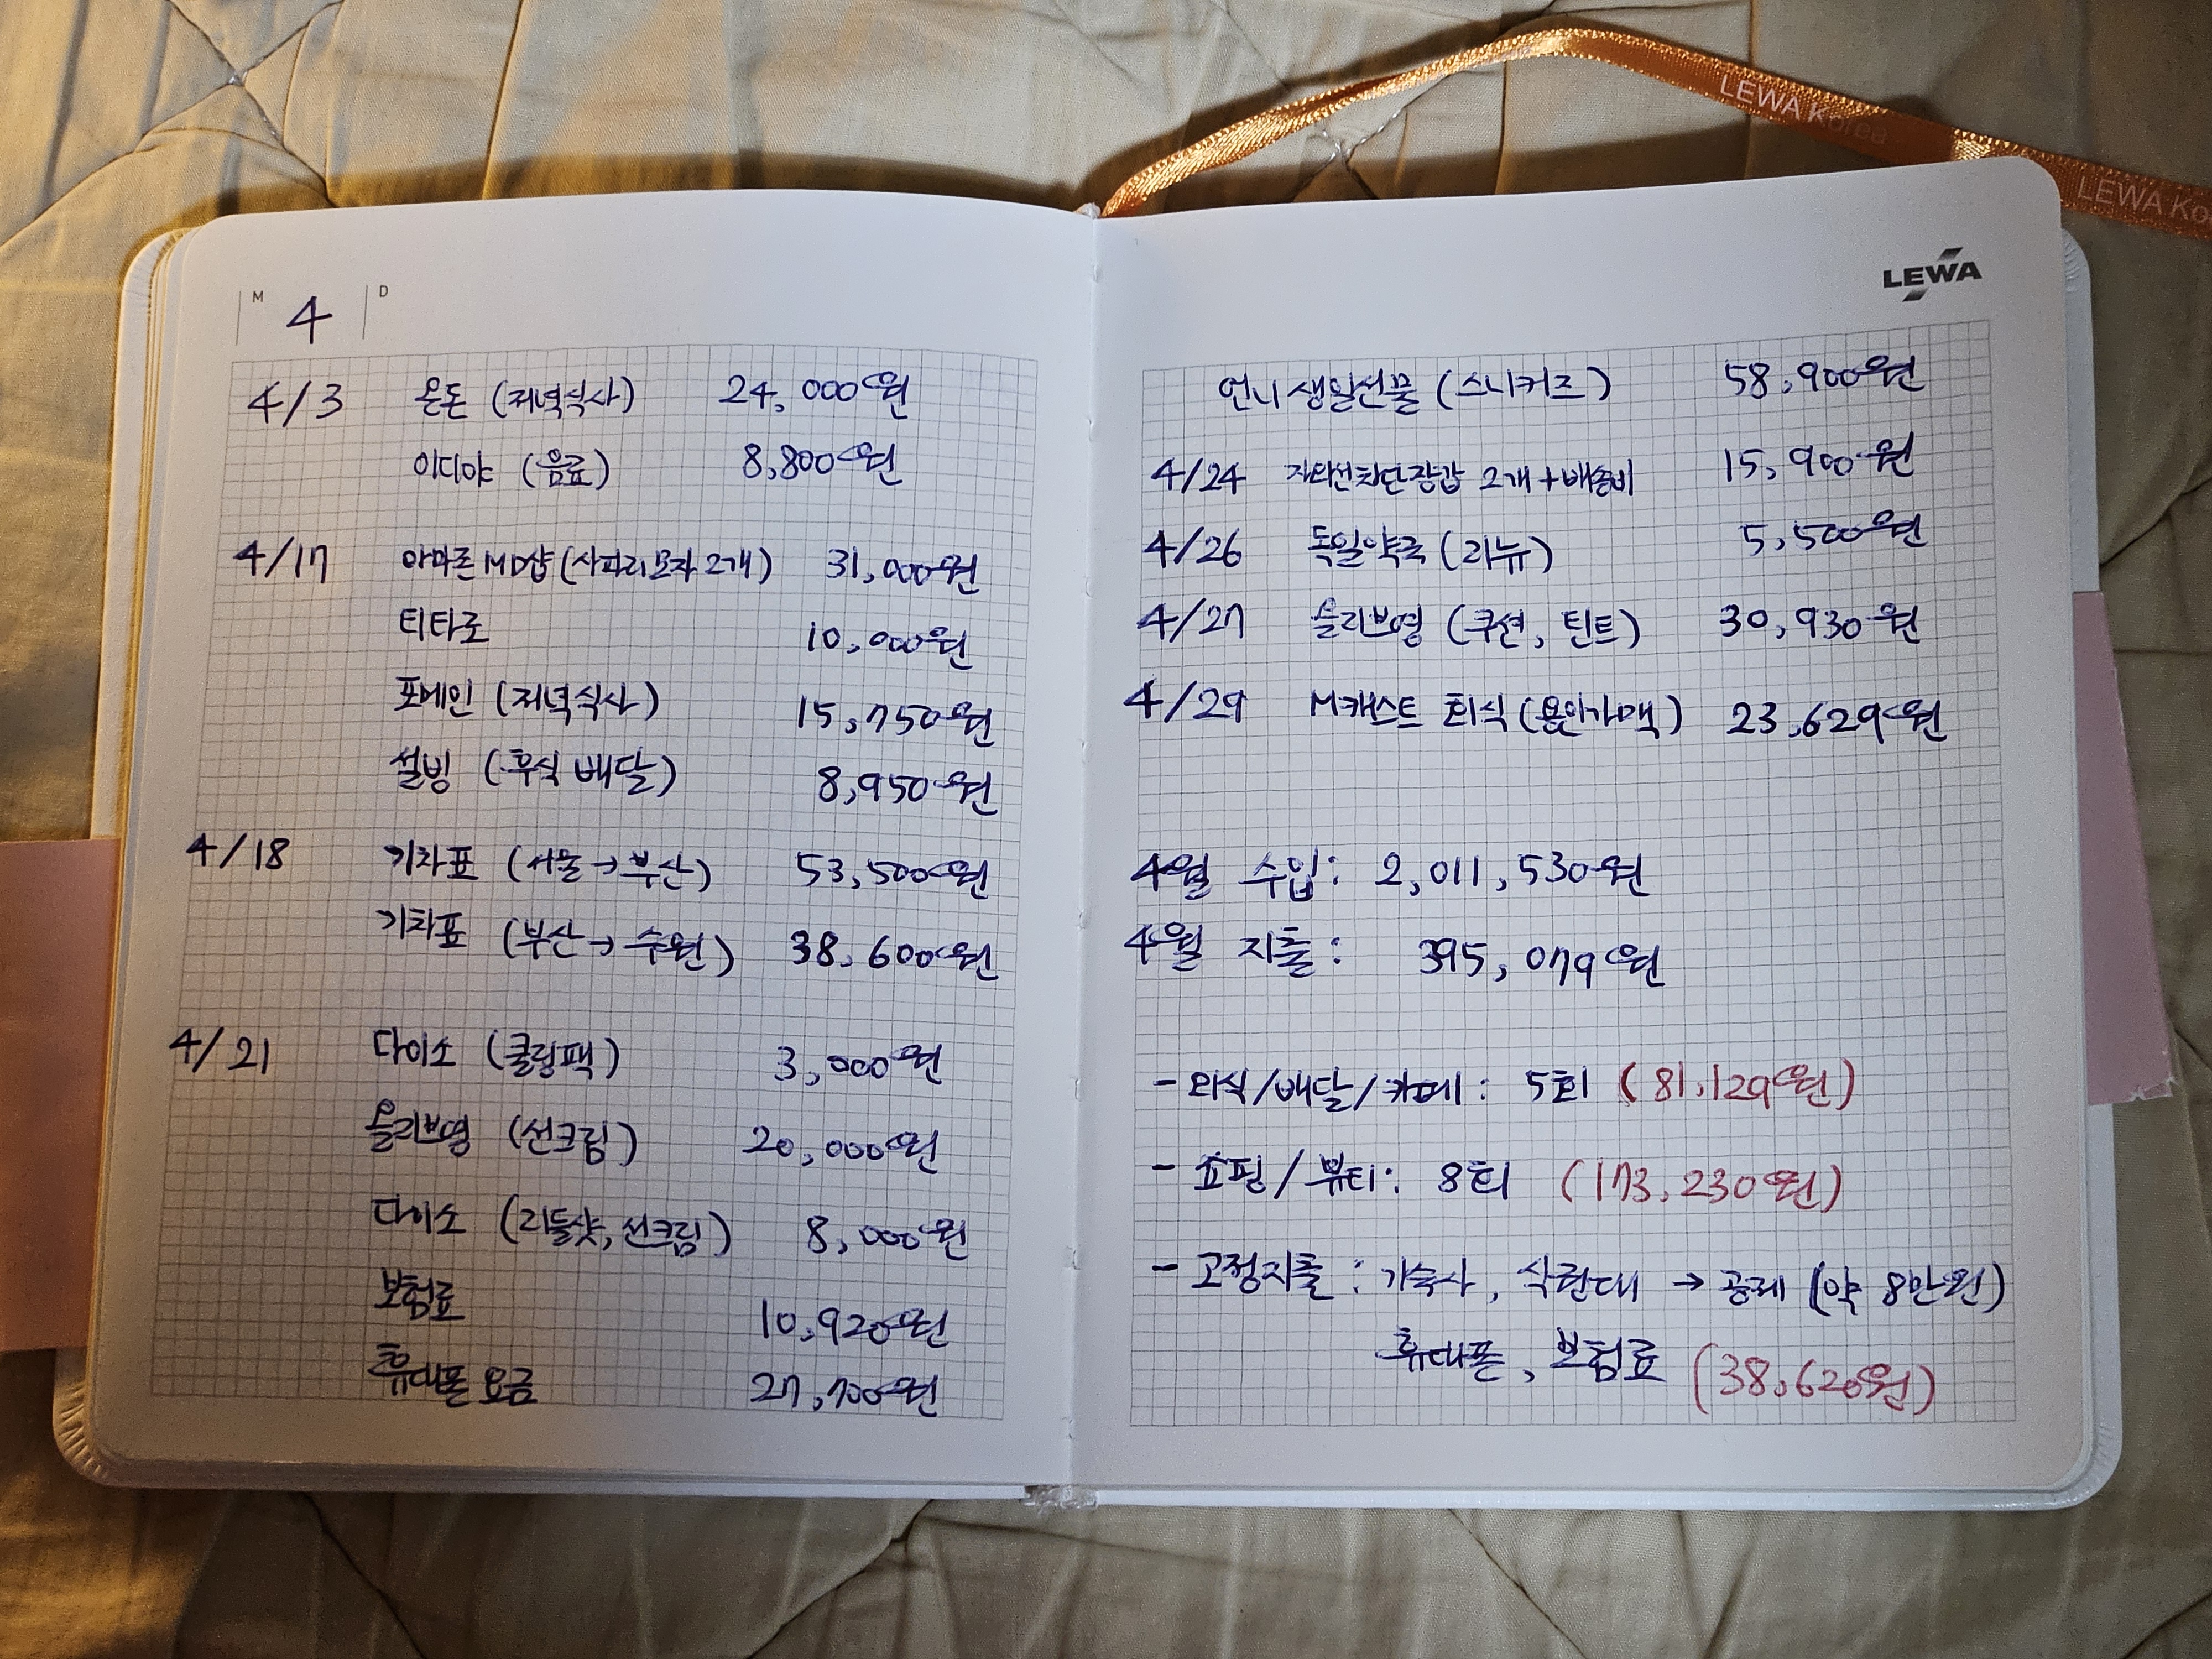 M 4 D
4/3 온돈 (저녁식사) 24,000원
이디야 (음료) 8,800원
4/17 아마존 MD샵 (사파리모자 2개) 31,000원
티타로 10,000원
포메인 (저녁식사) 15,750원
설빙 (후식 배달) 8,950원
4/18 기차표 (서울→부산) 53,500원
기차표 (부산→수원) 38,600원
4/21 다이소 (쿨링팩) 3,000원
올리브영 (선크림) 20,000원
다이소 (리들샷, 선크림) 8,000원
보험료 10,920원
휴대폰 요금 27,700원
LEWA
언니 생일선물 (스니커즈) 58,900원
4/24 자외선차단장갑 2개+배송비 15,900원
4/26 독일약국 (리뉴) 5,500원
4/27 올리브영 (쿠션, 틴트) 30,930원
4/29 M캐스트 회식 (용인가맥) 23,629원
4월 수입: 2,011,530원
4월 지출: 395,079원
- 외식/배달/카페: 5회 (81,129원)
- 쇼핑/뷰티: 8회 (173,230원)
- 고정지출: 기숙사, 식권대 → 공제 (약 8만원)
휴대폰, 보험료 (38,620원)
LEWA Korea
LEWA Ko